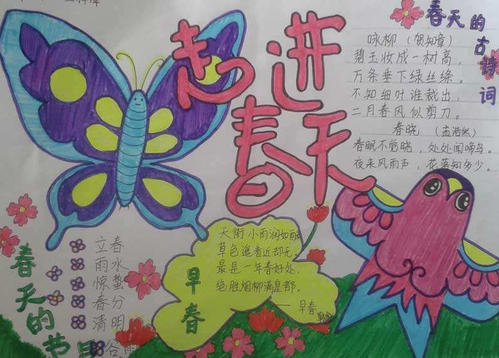 走进
春天
春天的古诗词
咏柳（贺知章）
碧玉妆成一树高，
万条垂下绿丝绦。
不知细叶谁裁出，
二月春风似剪刀。
春晓（孟浩然）
春眠不觉晓，处处闻啼鸟。
夜来风雨声，花落知多少。
早春
天街小雨润如酥
草色遥看近却无
最是一年春好处，
绝胜烟柳满皇都。
早春
春天的节
立春
雨水
惊蛰
春分
清明
谷雨